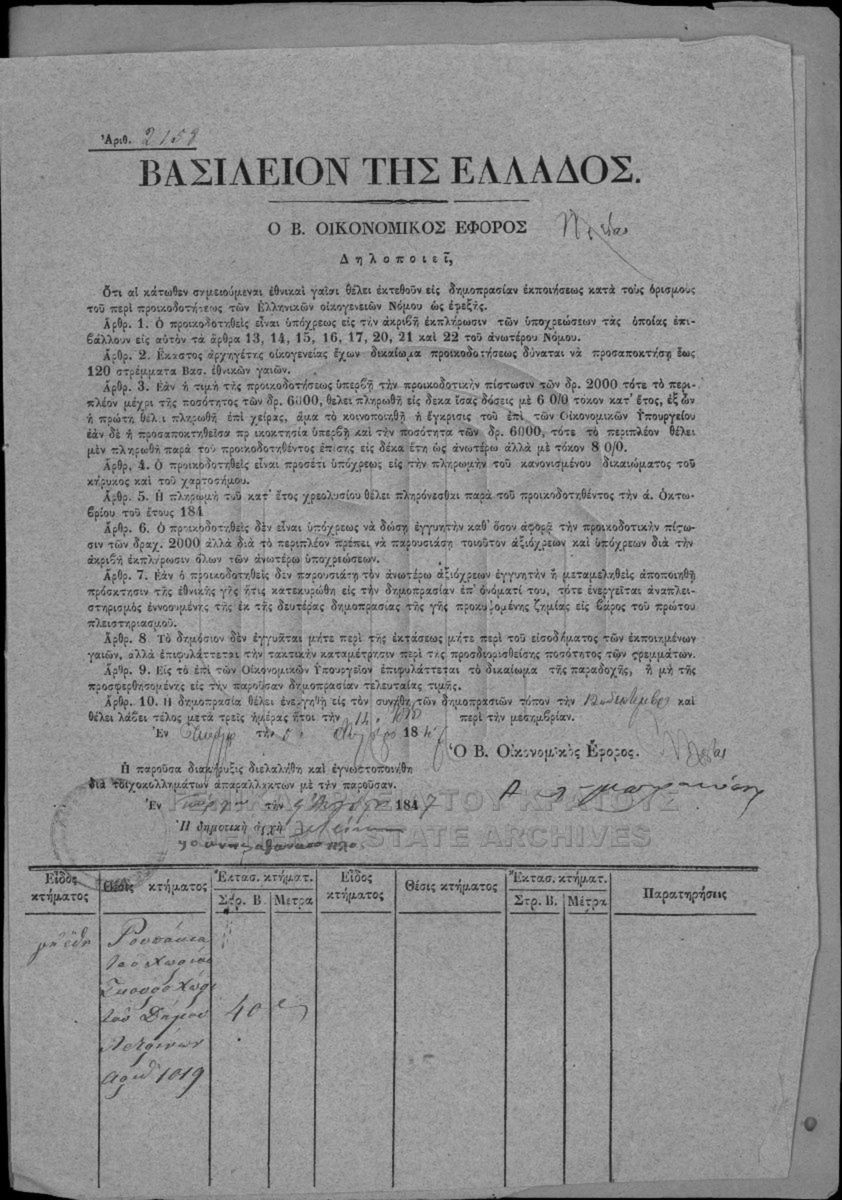 Ἀριθ. 2159
ΒΑΣΙΛΕΙΟΝ ΤΗΣ ΕΛΛΑΔΟΣ.
Ο Β. ΟΙΚΟΝΟΜΙΚΟΣ ΕΦΟΡΟΣ
Δηλοποιεῖ,
Ὅτι αἱ κάτωθεν σημειούμεναι ἐθνικαὶ γαῖαι θέλει ἐκτεθοῦν εἰς δημοπρασίαν ἐκποιήσεως κατὰ τοὺς ὁρισμοὺς
τοῦ περὶ προικοδοτήσεως τῶν Ἑλληνικῶν οἰκογενειῶν Νόμου ὡς ἐφεξῆς.
Ἄρθρ. 1. Ὁ προικοδοτηθεὶς εἶναι ὑπόχρεως εἰς τὴν ἀκριβῆ ἐκπλήρωσιν τῶν ὑποχρεώσεων τὰς ὁποίας ἐπι-
βάλλουν εἰς αὐτὸν τὰ ἄρθρα 13, 14, 15, 16, 17, 20, 21 καὶ 22 τοῦ ἀνωτέρου Νόμου.
Ἄρθρ. 2. Ἕκαστος ἀρχηγέτης οἰκογενείας ἔχων δικαίωμα προικοδοτήσεως δύναται νὰ προσαποκτήσῃ ἕως
120 στρέμματα Βασ. ἐθνικῶν γαιῶν.
Ἄρθρ. 3. Ἐὰν ἡ τιμὴ τῆς προικοδοτήσεως ὑπερβῇ τὴν προικοδοτικὴν πίστωσιν τῶν δρ. 2000 τότε τὸ περι-
πλέον μέχρι τῆς ποσότητος τῶν δρ. 6000, θέλει πληρωθῆ εἰς δέκα ἴσας δόσεις μὲ 6 0/0 τόκον κατ' ἔτος, ἐξ ὧν
ἡ πρώτη θέλει πληρωθῆ ἐπὶ χεῖρας, ἅμα τὸ κοινοποιηθῇ ἡ ἔγκρισις τοῦ ἐπὶ τῶν Οἰκονομικῶν Ὑπουργείου
ἐὰν δὲ ἡ προσαποκτηθεῖσα πρ ικοκτησία ὑπερβῇ καὶ τὴν ποσότητα τῶν δρ. 6000, τότε τὸ περιπλέον θέλει
μὲν πληρωθῆ παρὰ τοῦ προικοδοτηθέντος ἐπίσης εἰς δέκα ἔτη ὡς ἀνωτέρω ἀλλὰ μὲ τόκον 8 0/0.
Ἄρθρ. 4. Ὁ προικοδοτηθεὶς εἶναι προσέτι ὑπόχρεως εἰς τὴν πληρωμὴν τοῦ κανονισμένου δικαιώματος τοῦ
κήρυκος καὶ τοῦ χαρτοσήμου.
Ἄρθρ. 5. Ἡ πληρωμὴ τοῦ κατ' ἔτος χρεολυσίου θέλει πληρόνεσθαι παρὰ τοῦ προικοδοτηθέντος τὴν ά. Ὀκτω-
βρίου τοῦ ἔτους 184
Ἄρθρ. 6. Ὁ προικοδοτηθεὶς δὲν εἶναι ὑπόχρεως νὰ δώσῃ ἐγγυητὴν καθ' ὅσον ἀφορᾷ τὴν προικοδοτικὴν πίστω-
σιν τῶν δραχ. 2000 ἀλλὰ διὰ τὸ περιπλέον πρέπει νὰ παρουσιάσῃ τοιοῦτον ἀξιόχρεων καὶ ὑπόχρεων διὰ τὴν
ἀκριβῆ ἐκπλήρωσιν ὅλων τῶν ἀνωτέρω ὑποχρεώσεων.
Ἄρθρ. 7. Ἐὰν ὁ προικοδοτηθεὶς δὲν παρουσιάσῃ τὸν ἀνωτέρω ἀξιόχρεων ἐγγυητὴν ἢ μεταμεληθεὶς ἀποποιηθῇ
πρόσκτησιν τῆς ἐθνικῆς γῆς ἥτις κατεκυρώθη εἰς τὴν δημοπρασίαν ἐπ' ὀνόματί του, τότε ἐνεργεῖται ἀναπλει-
στηριασμὸς ἐννοουμένης τῆς ἐκ τῆς δευτέρας δημοπρασίας τῆς γῆς προκυψομένης ζημίας εἰς βάρος τοῦ πρώτου
πλειστηριασμοῦ.
Ἄρθρ. 8. Τὸ δημόσιον δὲν ἐγγυᾶται μήτε περὶ τῆς ἐκτάσεως μήτε περὶ τοῦ εἰσοδήματος τῶν ἐκποιημένων
γαιῶν, ἀλλὰ ἐπιφυλάττεται τὴν τακτικὴν καταμέτρησιν περὶ τῆς προσδιορισθείσης ποσότητος τῶν στρεμμάτων.
Ἄρθρ. 9. Εἰς τὸ ἐπὶ τῶν Οἰκονομικῶν Ὑπουργεῖον ἐπιφυλάττεται τὸ δικαίωμα τῆς παραδοχῆς, ἢ μὴ τῆς
προσφερθησομένης εἰς τὴν παροῦσαν δημοπρασίαν τελευταίας τιμῆς.
Ἄρθρ. 10. Ἡ δημοπρασία θέλει ἐνεργηθῆ εἰς τὸν συνήθη τῶν δημοπρασιῶν τόπον τὴν 12 καὶ
θέλει λάβει τέλος μετὰ τρεῖς ἡμέρας ἤτοι τὴν 14 περὶ τὴν μεσημβρίαν.
Ἐν Πύργῳ τὴν 184
Ὁ Β. Οἰκονομικὸς Ἔφορος.
Ἡ παροῦσα διακήρυξις διελαλήθη καὶ ἐγνωστοποιήθη
διὰ τοιχοκολλημάτων ἀπαραλλάκτων μὲ τὴν παροῦσαν.
Ἐν Πύργῳ τὴν 1847
Ἡ δημοτικὴ ἀρχὴ
STATE ARCHIVES
Εἶδος κτήματος Θέσις κτήματος Ἔκτασ. κτήματ. Εἶδος κτήματος Θέσις κτήματος Ἔκτασ. κτήματ. Παρατηρήσεις
Στρ. Β. Μέτρα Στρ. Β. Μέτρα
τοῦ χωρίου
τοῦ Δήμου 40
Λετρίνων
ἀριθ 1019